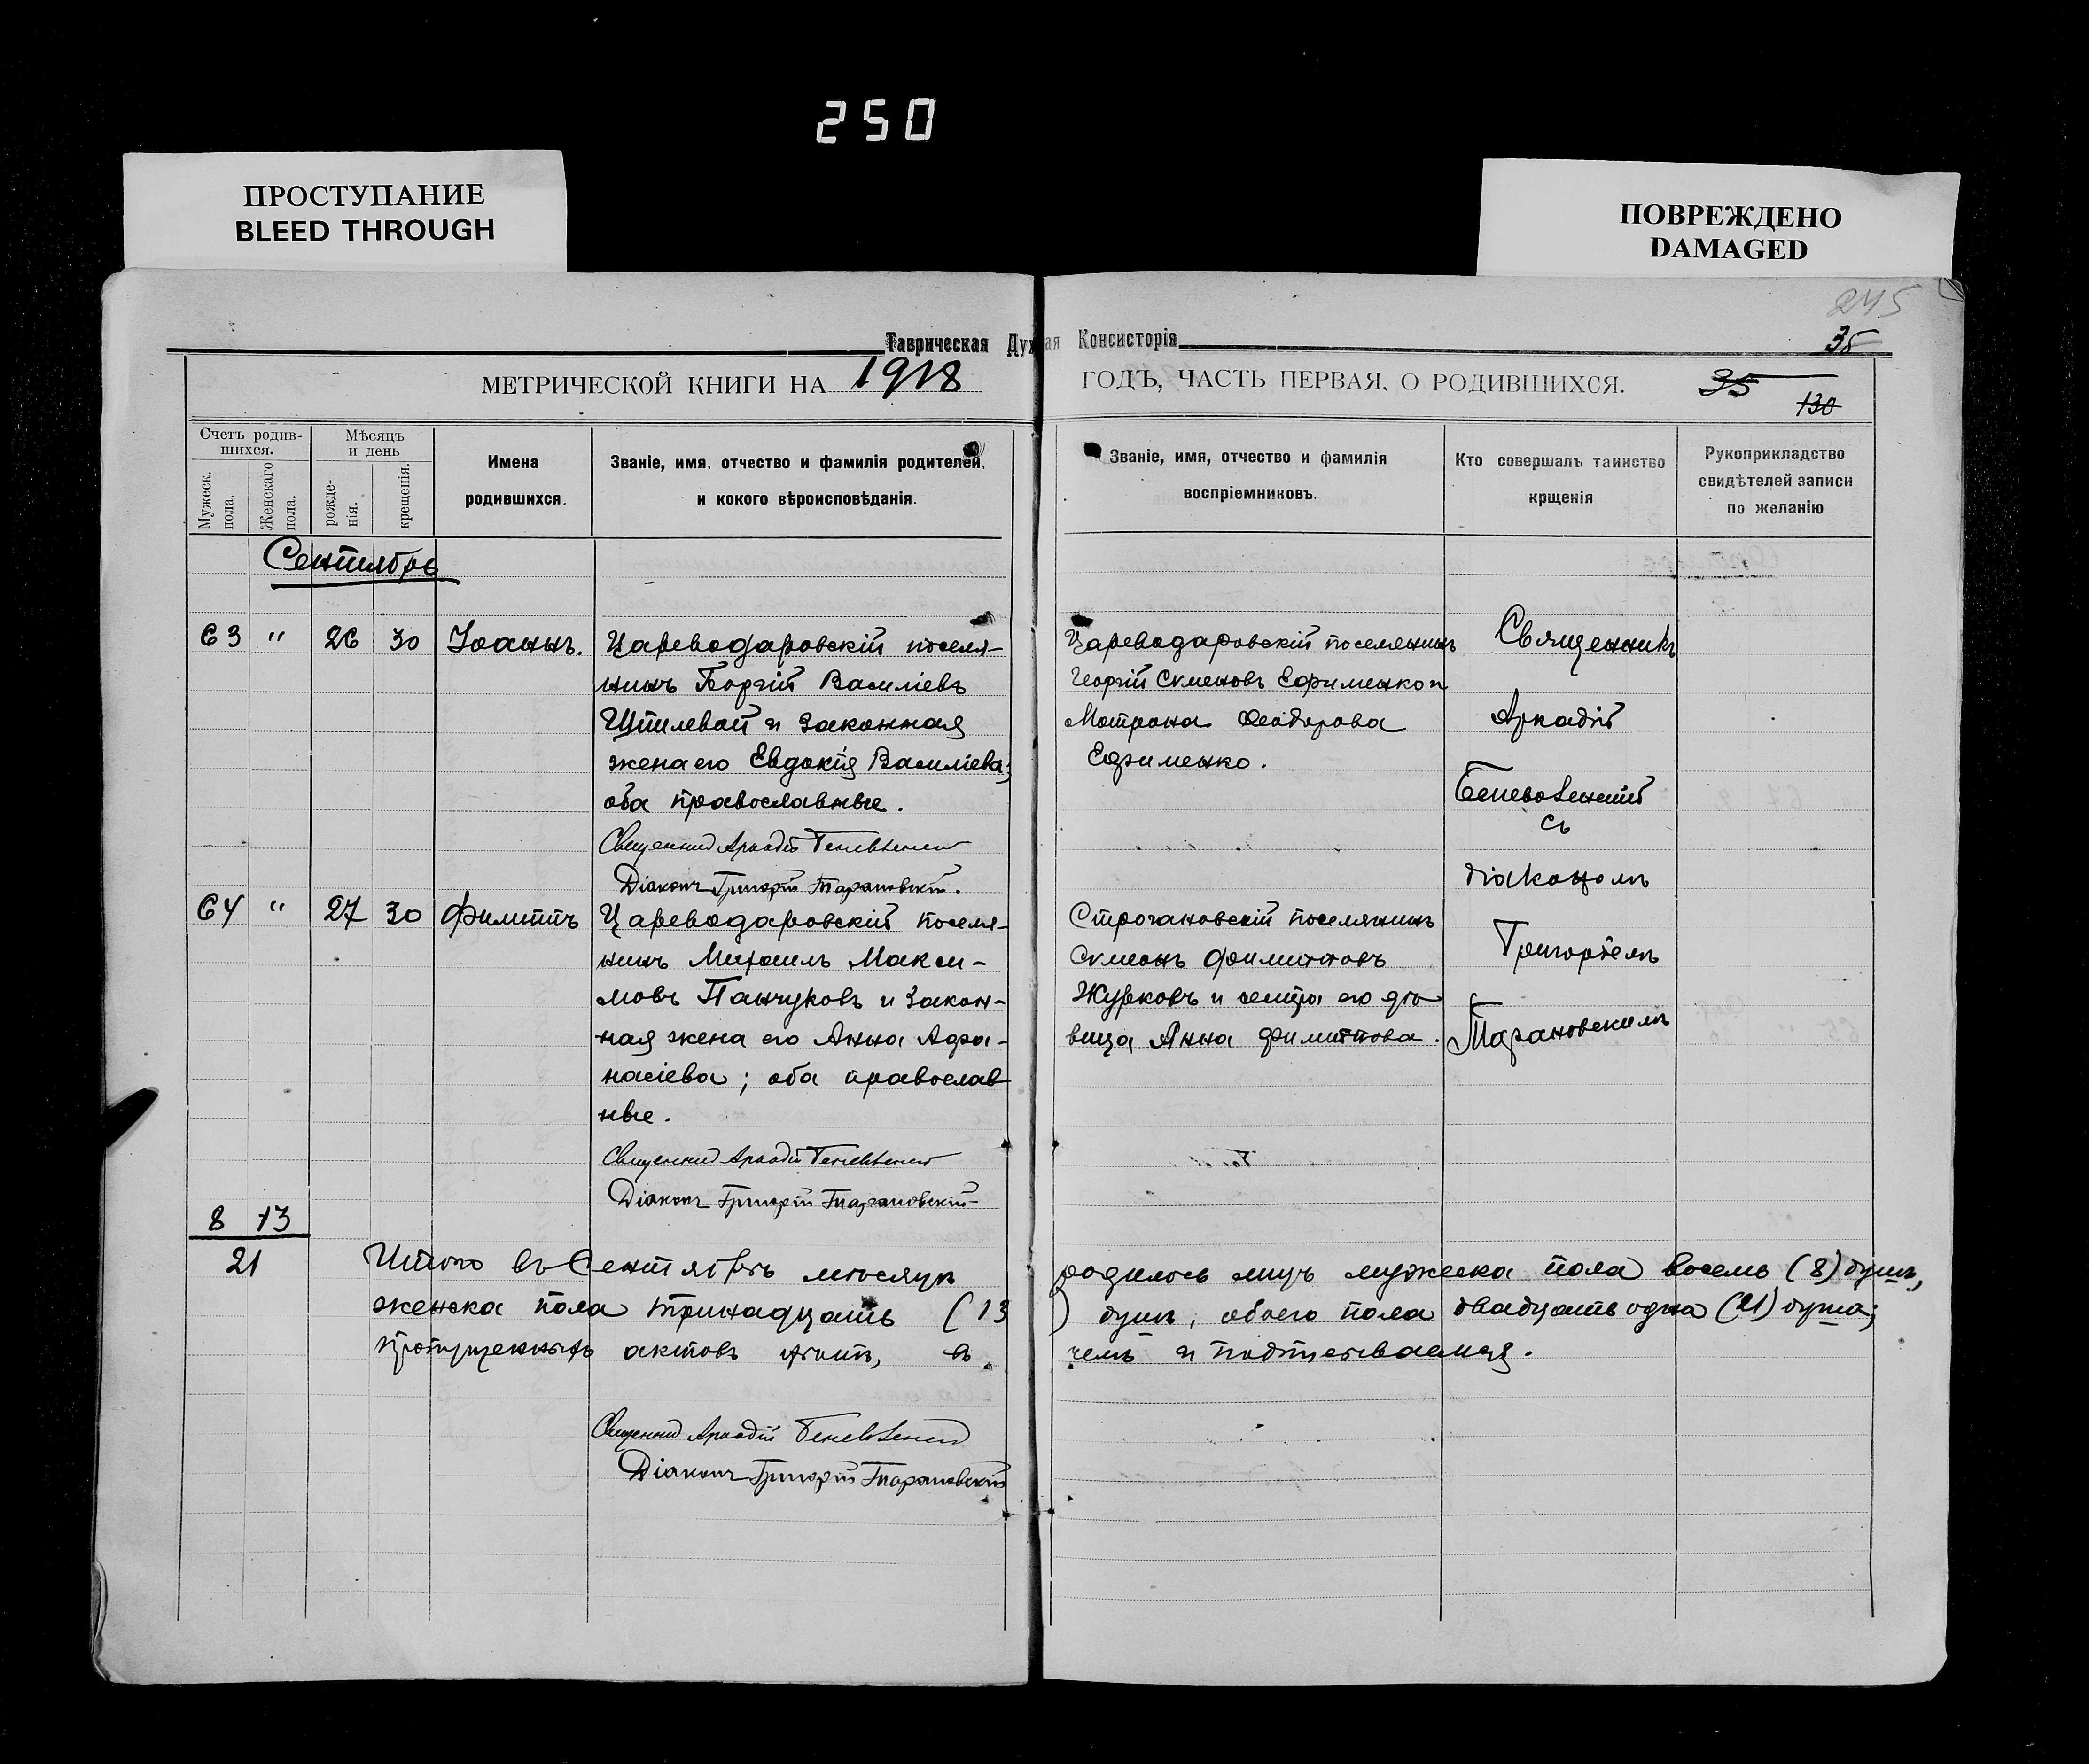 250
ПРОСТУПАНИЕ
BLEED THROUGH
ПОВРЕЖДЕНО
DAMAGED
245
Таврическая Дух ая Консисторія
35
МЕТРИЧЕСКОЙ КНИГИ НА 1918
ГОДЪ, ЧАСТЬ ПЕРВАЯ. О РОДИВШИХСЯ.
35
130
Счетъ родив-
шихся.
Мужеск.
пола.
Женскаго
пола.
Мѣсяцъ
и день
рожде-
нія.
крещенія.
Имена
родившихся.
Званіе, имя, отчество и фамилія родителей,
и кокого вѣроисповѣданія.
Званіе, имя, отчество и фамилія
воспріемниковъ.
Кто совершалъ таинство
крщенія
Рукоприкладство
свидѣтелей записи
по желанію
Сентябрь
63 " 26 30 Іоаннъ.
Цареводаровскій поселя-
нинъ Георгій Василіевъ
Шпилевой и законная
жена его Евдокія Василіева;
оба православные.
Священник Аркадій Беневоленский
Діаконъ Григорій Тарановскій.
Цареводаровскій поселянинъ
Георгій Симеоновъ Ефименко и
Матрона Феодорова
Ефименко.
Священникъ
Аркадій
Беневоленский
съ
діакономъ
Григоріемъ
Тарановскимъ
64 " 27 30 Филиппъ
Цареводаровскій поселя-
нинъ Михаилъ Макси-
мовъ Панчуковъ и закон-
ная жена его Анна Афа-
насіева; оба православ
ные.
Священник Аркадій Беневоленский
Діаконъ Григорій Тарановскій
Строгановскій поселянинъ
Симеонъ Филипповъ
Журковъ и сестра его дѣ
вица Анна Филиппова.
8 13
21
Итого въ Сентябрѣ мѣсяцѣ родилось лицъ мужеска пола восемь (8) душъ,
женска пола тринадцать (13) душъ, обоего пола двадцать одна (21) душа;
пропущенныхъ актовъ нѣтъ, въ чемъ и подписываемся.
Священник Аркадій Беневоленский
Діаконъ Григорій Тарановскій